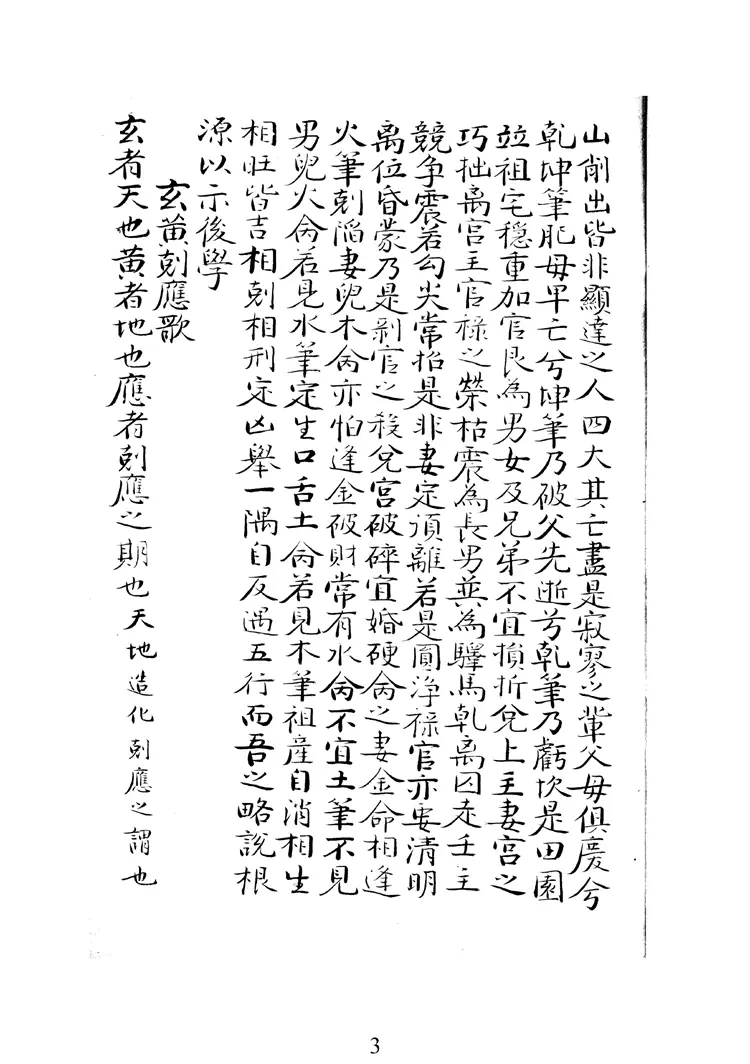 山削出皆非顯達之人四大其亡盡是寂寥之輩父母俱慶兮
乾坤筆肥母早亡兮坤筆乃破父先逝兮乾筆乃虧坎是田園
竝祖宅穩重加官艮為男女及兄弟不宜損折兌上主妻宮之
巧拙离宮主官祿之榮枯震為長男並為驛馬乾离囚走壬主
競争震若勾尖常招是非妻定須離若是圓淨祿官亦要清明
离位昏蒙乃是剥官之殺兌宮破碎宜婚硬侖之妻金命相逢
火筆剋陷妻兒木侖亦怕逢金破財常有水侖不宜土筆不見
男兒火侖若見水筆定生口舌土侖若見木筆祖産自消相生
相旺皆吉相剋相刑定凶舉一隅自反遇五行而吾之略説根
源以示後學
玄黄剋應歌
玄者天也黄者地也應者剋應之期也天地造化剋應之謂也
3